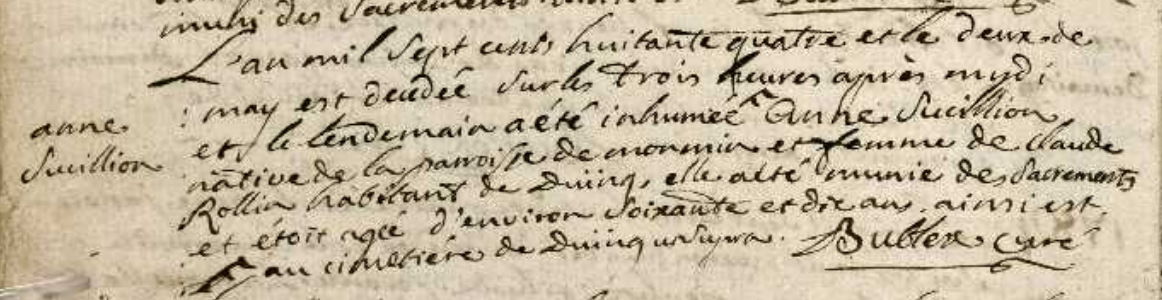 muni des Sacrements
L'an mil Sept cents huitante quatre et le deux de
may est decedée Sur les trois heures après mydi
et le lendemain a été inhumée ^ Anne Sucillion
anne
Sucillion
native de la parroisse de mormin et femme de Claude
Rollin habitant de Duinq, elle a été munie des Sacrements
et étoit agée d'environ Soixante et dix ans. ainsi est
^ au cimetiére de Duinq ut Supra. Buttex curé